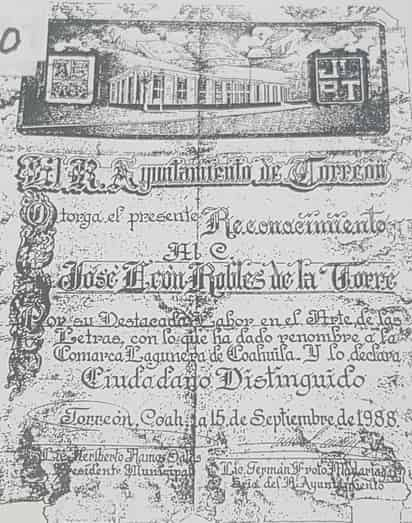 El R. Ayuntamiento de Torreón
Otorga el presente Reconocimiento
Al C.
José León Robles de la Torre
Por su Destacada Labor en el Arte de las
Letras, con lo que ha dado renombre a la
Comarca Lagunera de Coahuila. Y lo declara
Ciudadano Distinguido
Torreón, Coah., a 15 de Septiembre de 1988
Lic. Heriberto Ramos Salas
Presidente Municipal
Lic. Germán Froto Madariaga
Srio. del R. Ayuntamiento